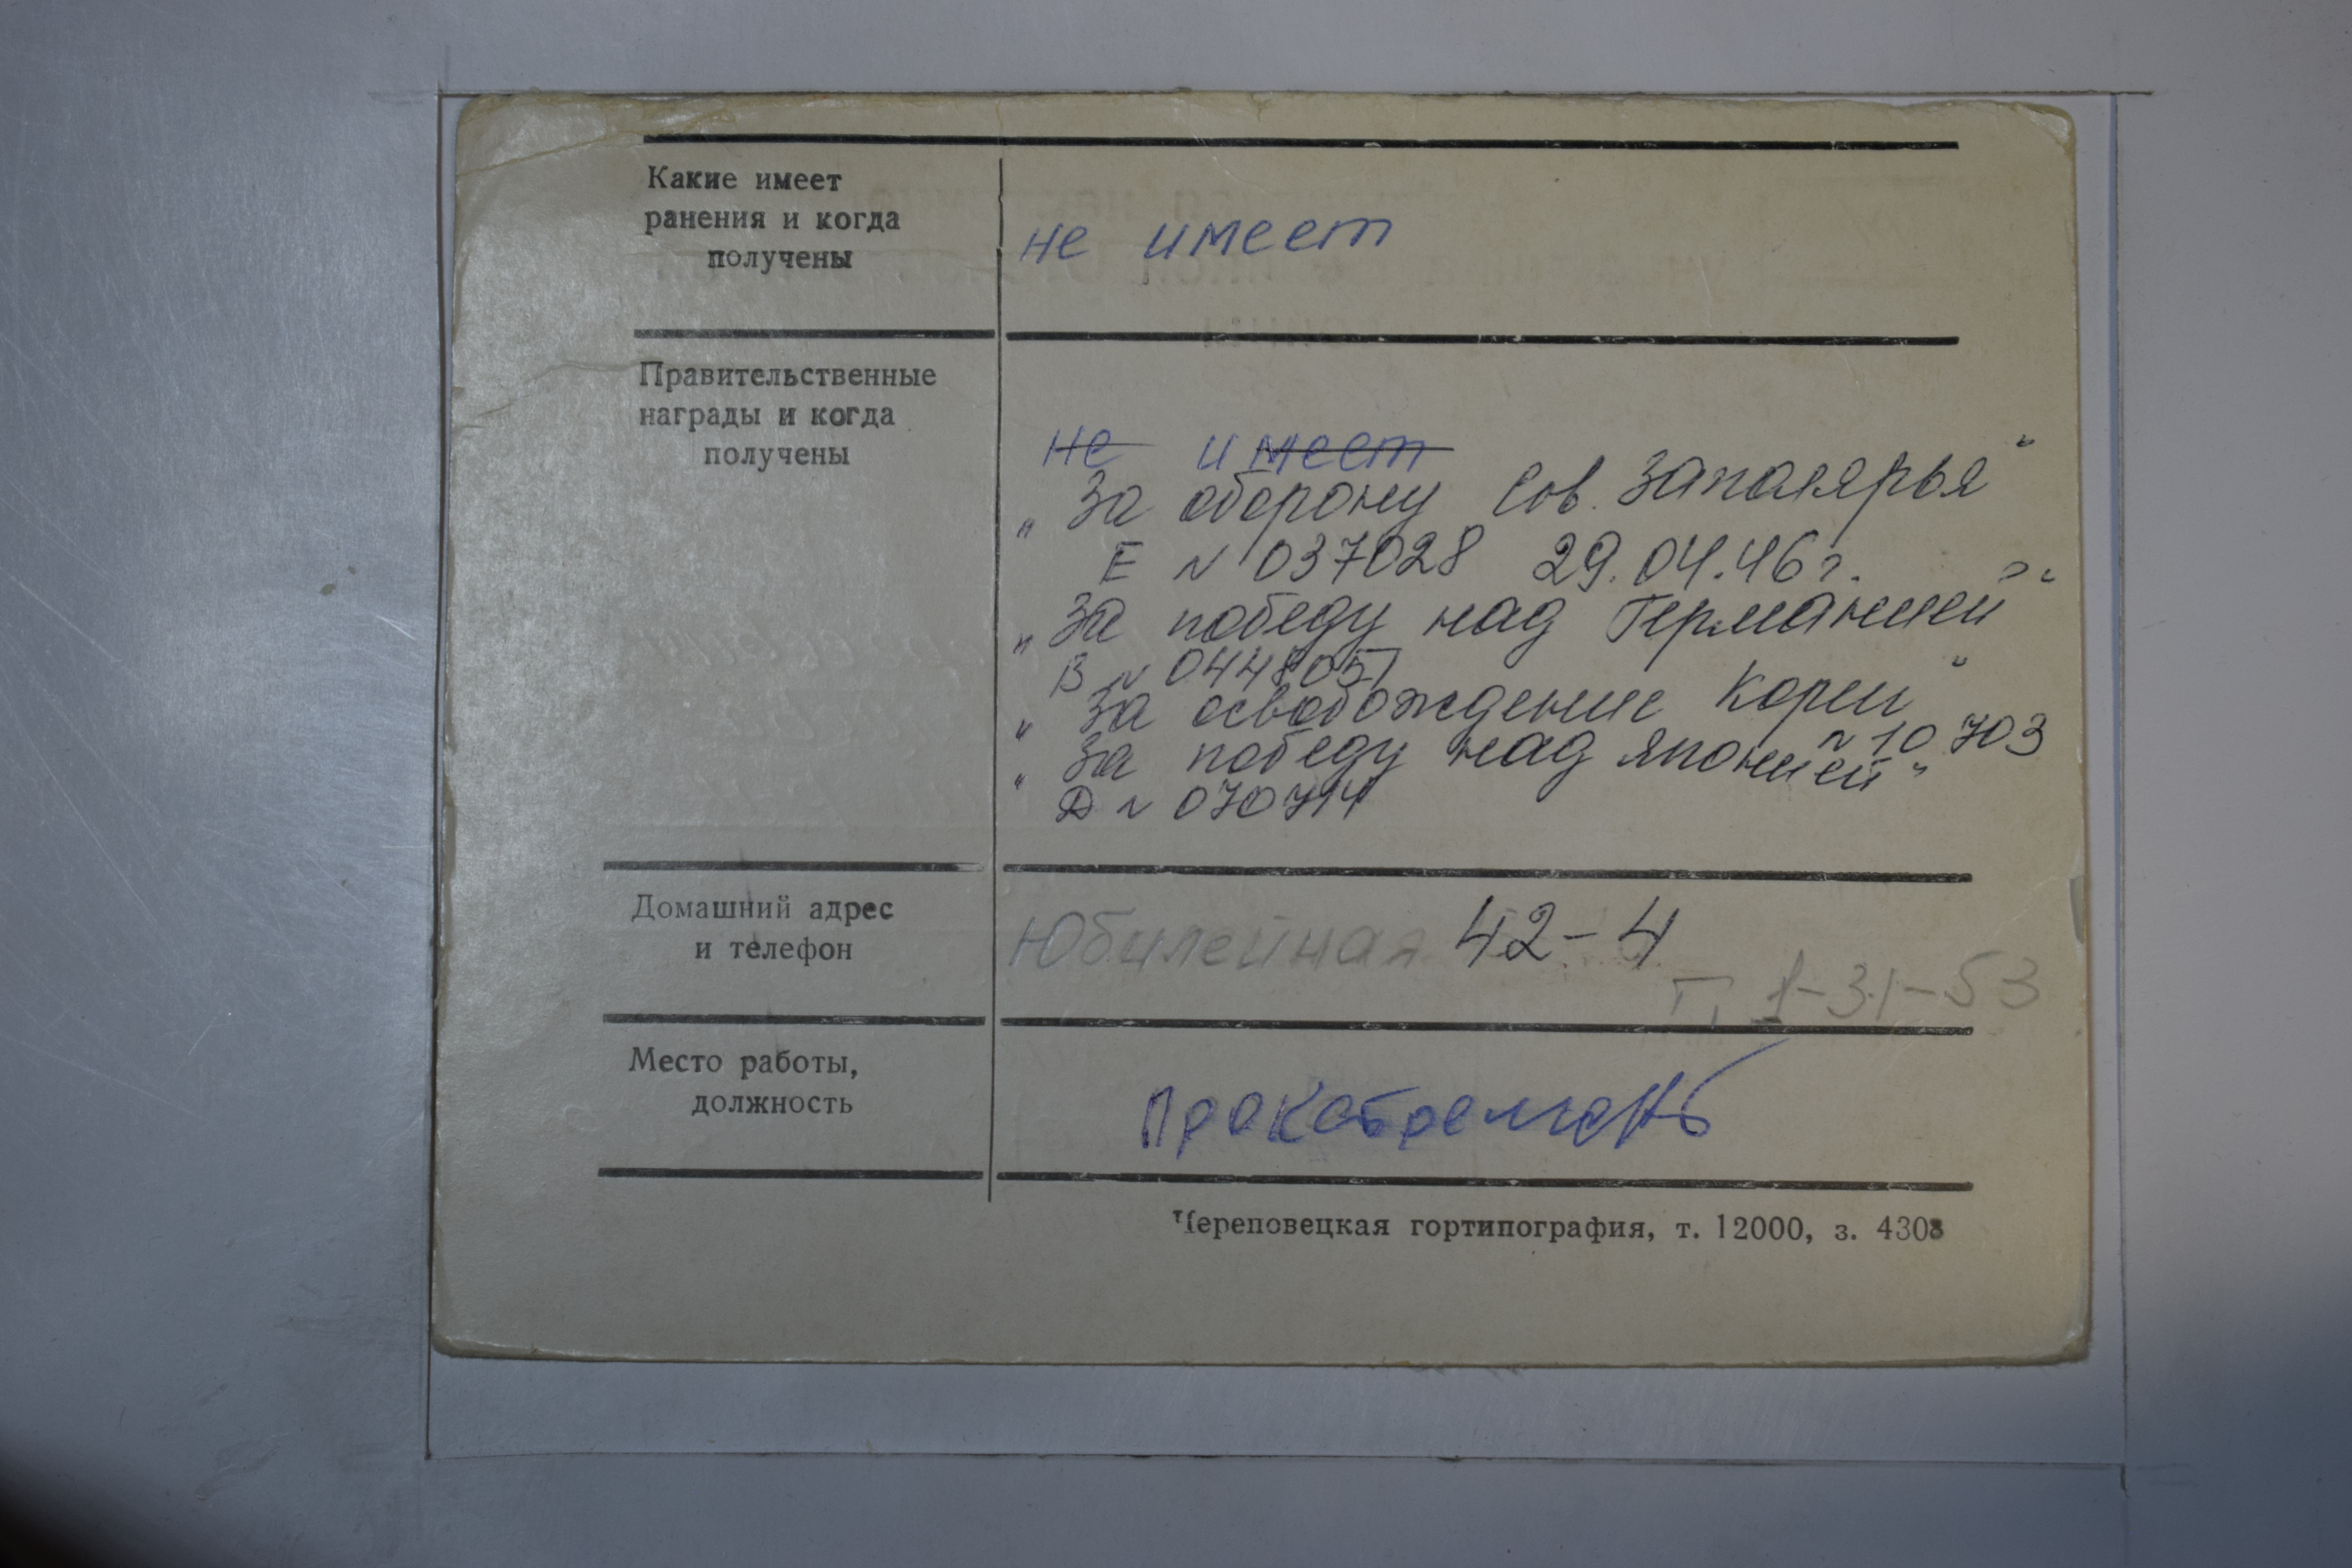 Какие имеет
ранения и когда
получены
не имеет
Правительственные
награды и когда
получены
не имеет
„За оборону Сов. Заполярья“
Е № 037028 29.04.46 г.
„За победу над Германией“
В № 0448057
„За освобождение Кореи“
№ 10703
„За победу над Японией“
Д № 070714
Домашний адрес
и телефон
Юбилейная 42-4
т. 1-31-53
Место работы,
должность
Прокатремонт
Череповецкая гортипография, т. 12000, з. 4308